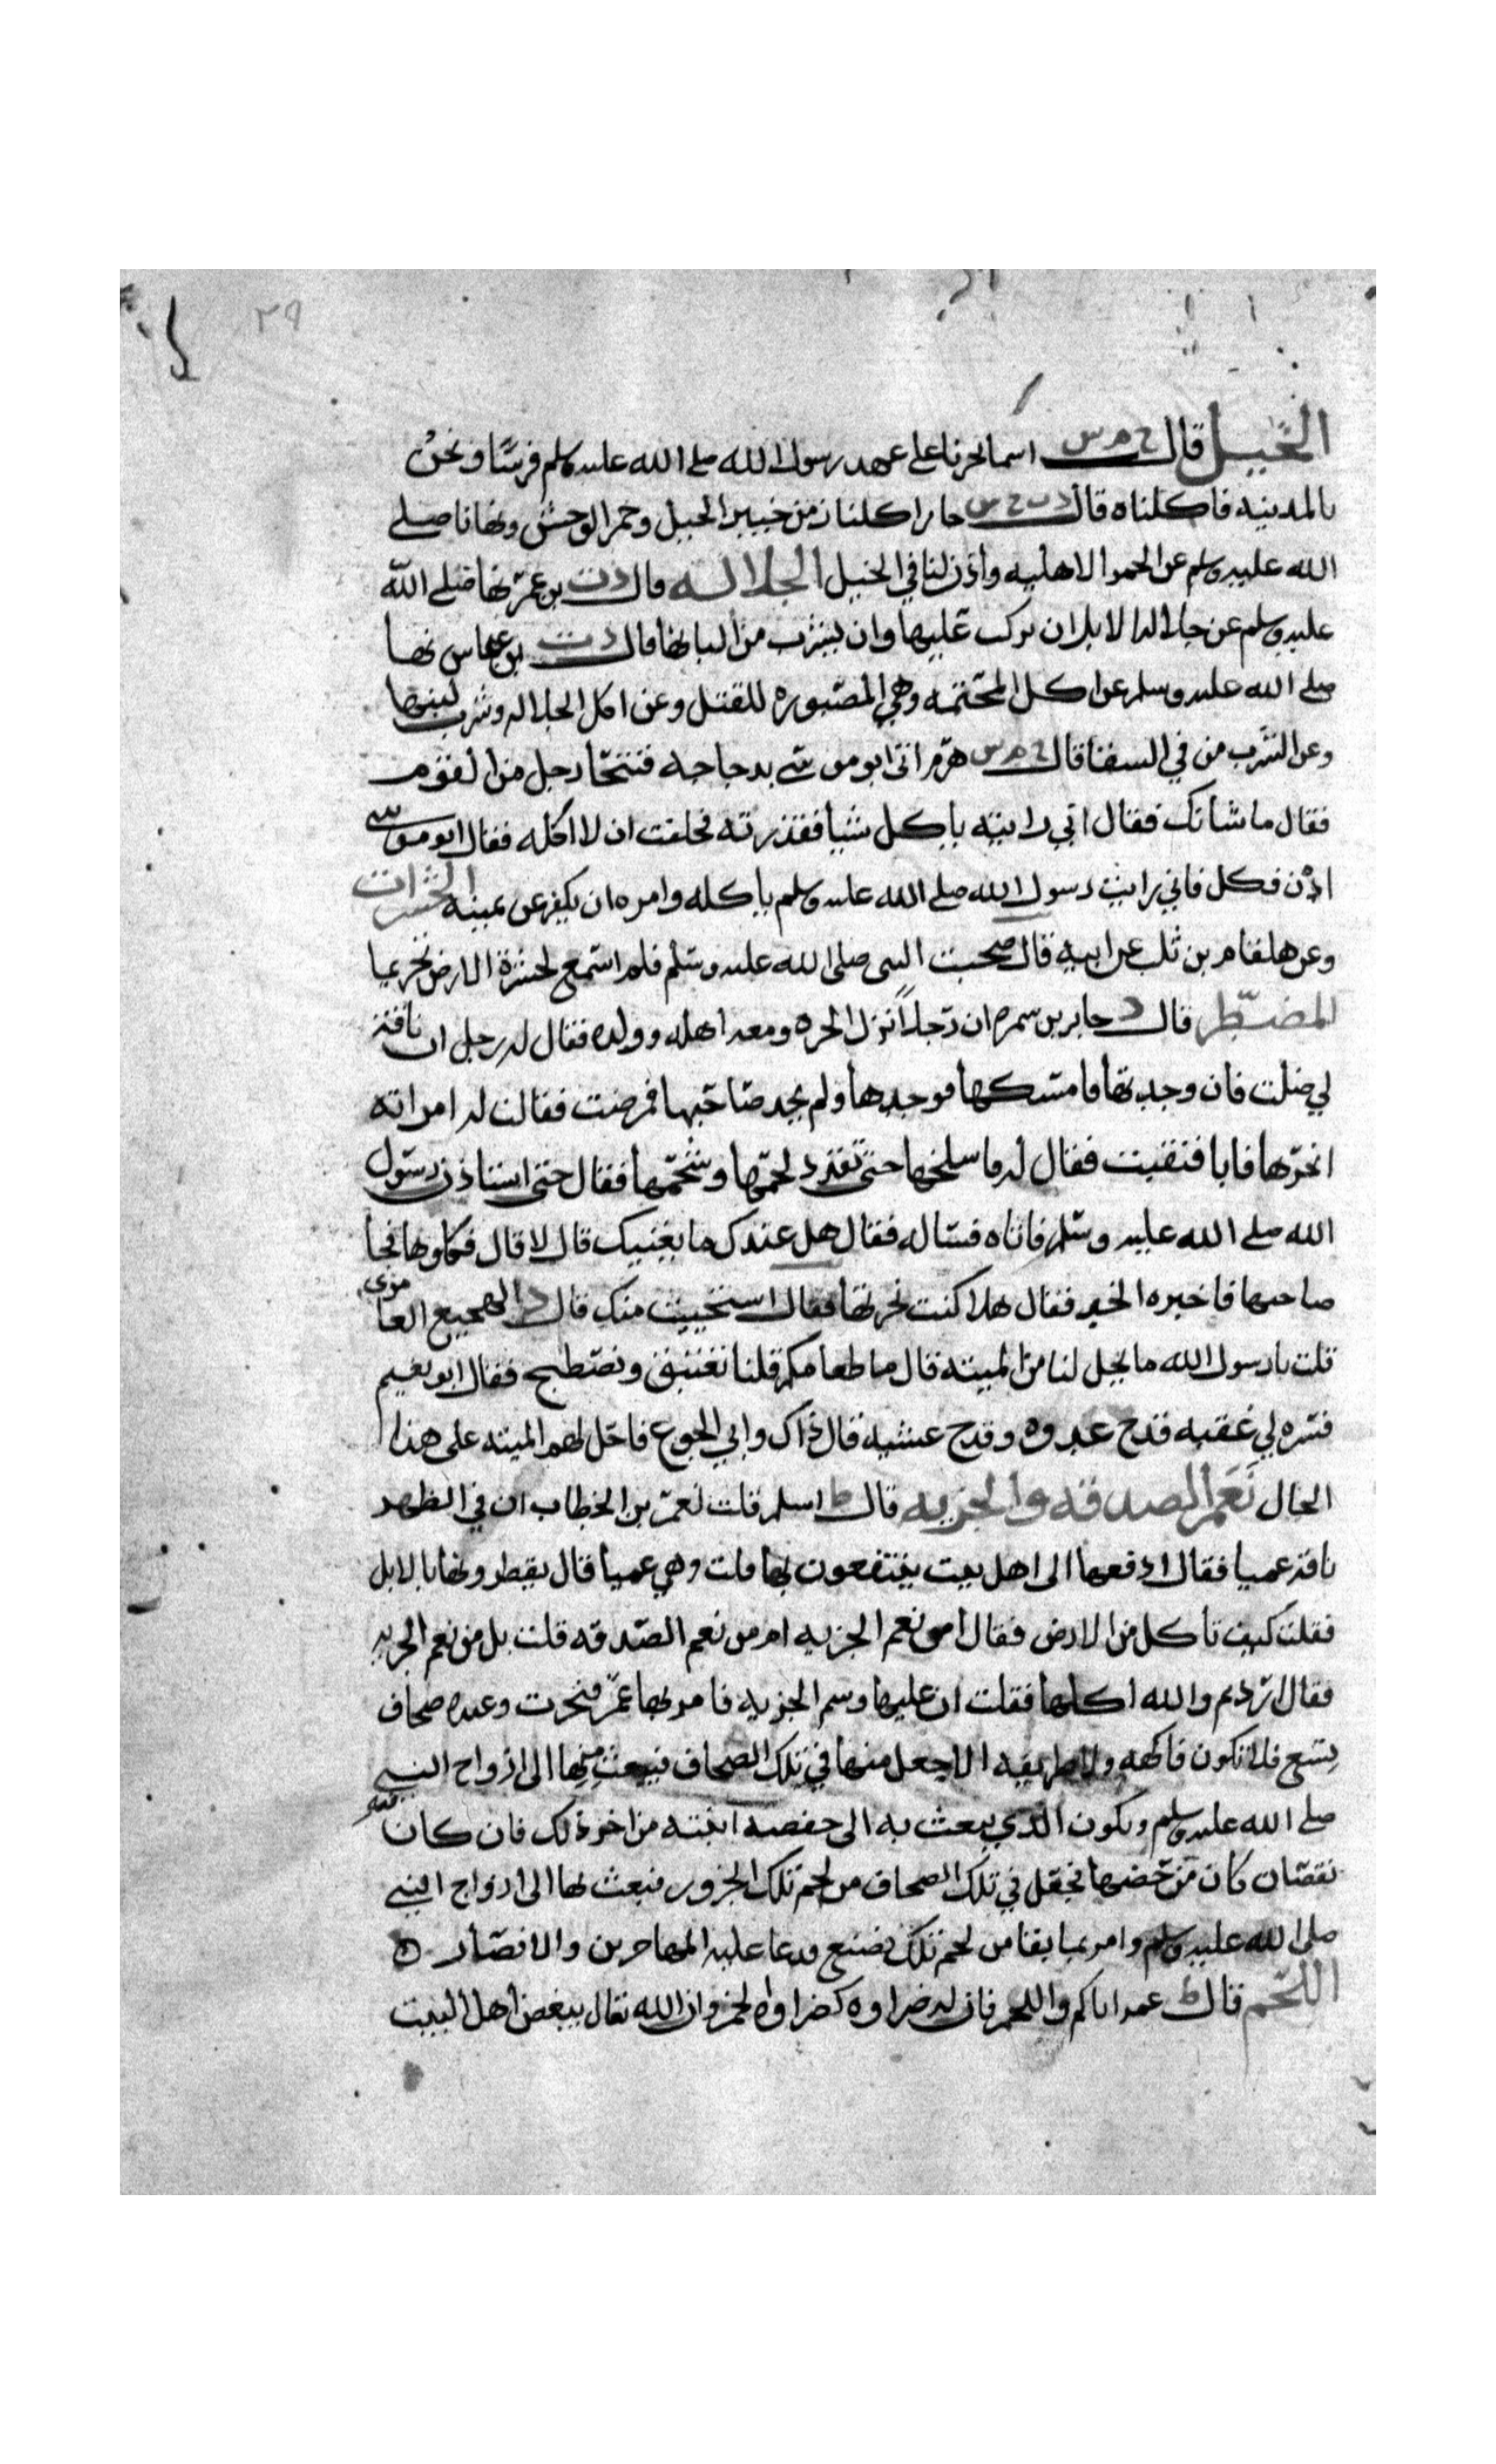 ٢٩
الخيل قال خ م س اسما نحرنا على عهد رسول الله صلى الله عليه وسلم فرسًا ونحنُ
بالمدينه فاكلناه قال جابر اكلنا زمن خيبر الخيل وحمر الوحش ونهانا صلى
الله عليه وسلم عن الحمر الاهليه واذن لنا في الخيل الجلاله قال د ت بن عمر نها صلى الله
عليه وسلم عن جلاله الابل ان يركب عليها وان يشرب من البانها قال د ت بن عباس نها
صلى الله عليه وسلم عن اكل المجثمه وهي المصبوره للقتل وعن اكل الجلاله وشرب لبنها
وعن الشرب من في السقا قال خ م س هدم اتى ابو موسى بدجاجه فتنحّا رجل من القوم
فقال ما شانك فقال اني رايته ياكل شيا فقذرته فحلفت ان لا اكله فقال ابو موسى
ادْن فكل فاني رايت رسول الله صلى الله عليه وسلم ياكله وامره ان يكفر عن يمينه الحشرات
وعن هلقام بن تلب عن ابيه قال صحبت النبى صلى الله عليه وسلم فلم اسمع لحشرة الارض تحريما
المضطر قال د جابر بن سمره ان رجلاً نزل الحره ومعه اهله وولده فقال له رجل ان ناقة
لي ضلت فان وجدتها فامسكها فوجدها ولم يجد صاحبها فمرضت فقالت له امراته
انحرها فابا فنفقت فقال له ما سلخها حتى نقدد لحمها وشحمها فقال حتى استاذن رسول
الله صلى الله عليه وسلم فاتاه فساله فقال هل عندك ما يغنيك قال لا قال فكلوها فجا
صاحبها فاخبره الخبر فقال هلا كنت نحرتها فقال استحييت منك قال د الفجيع العامرى
قلت يا رسول الله ما يحل لنا من الميته قال ما طعامكم قلنا نغتبق ونصطبح فقال ابو نعيم
فسره لي عقبه قدح غدوه وقدح عشيه قال ذاك وابي الجوع فاحل لهم الميته على هذا
الحال نَعَم الصدقه والجزيه قال ط اسلم قلت لعمر بن الخطاب ان في الظهر
ناقة عميا فقال ادفعها الى اهل بيت ينتفعون بها قلت وهي عميا قال يقطرونها بالابل
فقلت كيف تاكل من الارض فقال امن نعم الجزيه ام من نعم الصدقه قلت بل من نعم الجزيه
فقال اردتم والله اكلها فقلت ان عليها وسم الجزيه فامر بها عمر فنحرت وعنده صحاف
تسع فلا تكون فاكهه ولا طريفه الا جعل منها في تلك الصحاف فيبعث منها الى ازواج النبي
صلى الله عليه وسلم ويكون الذي يبعث به الى حفصه ابنته من اخر ذلك فان كان فيه
نقصان كان من حضها فجعل في تلك الصحاف من لحم تلك الجزور فبعث بها الى ازواج النبي
صلى الله عليه وسلم وامر بما بقا من لحم تلك فصنع فدعا عليه المهاجرين والانصار
اللحم قال ط عمر اياكم واللحم فان له ضراوه كضراوه الخمر وان الله تعال يبغض اهل البيت